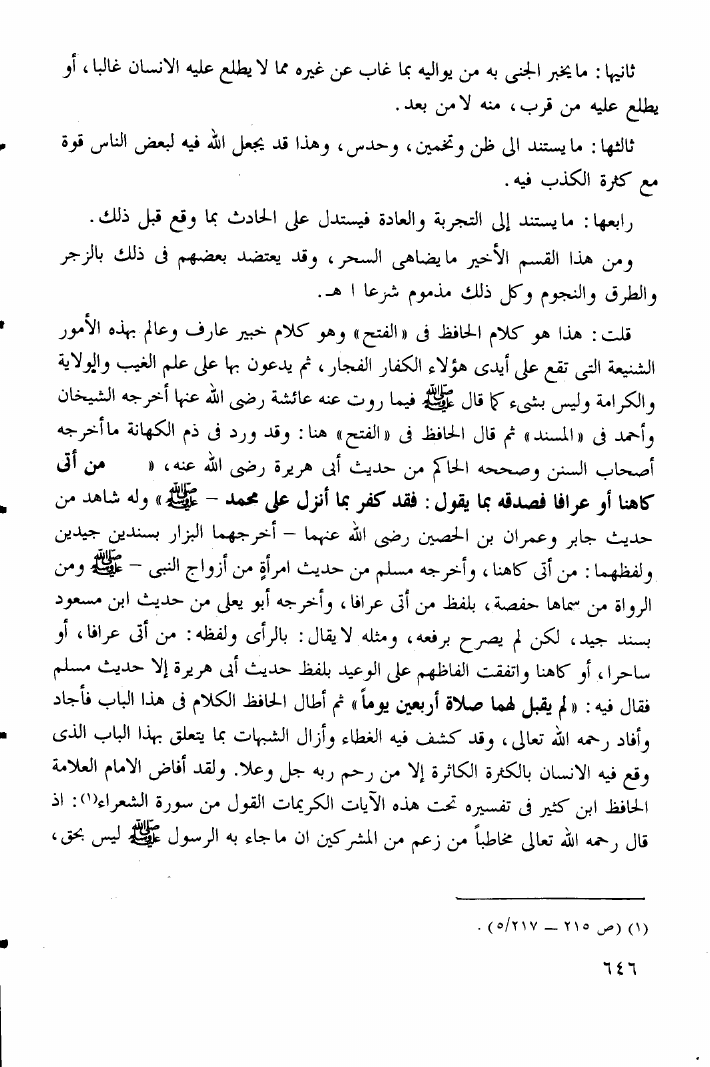 ثانيها: مايخبر الجنى به من يواليه بما غاب عن غيره مما لا يطلع عليه الانسان غالبا، أو
يطلع عليه من قرب، منه لا من بعد.
ثالثها: مايستند الى ظن وتخمين، وحدس، وهذا قد يجعل الله فيه لبعض الناس قوة
مع كثرة الكذب فيه.
رابعها: مايستند إلى التجربة والعادة فيستدل على الحادث بما وقع قبل ذلك.
ومن هذا القسم الأخير مايضاهى السحر، وقد يعتضد بعضهم فى ذلك بالزجر
والطرق والنجوم وكل ذلك مذموم شرعا ا هـ.
قلت: هذا هو كلام الحافظ فى «الفتح» وهو كلام خبير عارف وعالم بهذه الأمور
الشنيعة التى تقع على أيدى هؤلاء الكفار الفجار، ثم يدعون بها على علم الغيب والولاية
والكرامة وليس بشىء كما قال ﷺ فيما روت عنه عائشة رضى الله عنها أخرجه الشيخان
وأحمد فى «المسند» ثم قال الحافظ فى «الفتح» هنا: وقد ورد فى ذم الكهانة ماأخرجه
أصحاب السنن وصححه الحاكم من حديث أبى هريرة رضى الله عنه، « من أتى
كاهنا أو عرافا فصدقه بما يقول: فقد كفر بما أنزل على محمد – ﷺ» وله شاهد من
حديث جابر وعمران بن الحصين رضى الله عنهما – أخرجهما البزار بسندين جيدين
ولفظهما: من أتى كاهنا، وأخرجه مسلم من حديث امرأةٍ من أزواج النبى – ﷺ ومن
الرواة من سماها حفصة، بلفظ من أتى عرافا، وأخرجه أبو يعلى من حديث ابن مسعود
بسند جيد، لكن لم يصرح برفعه، ومثله لا يقال: بالرأى ولفظه: من أتى عرافا، أو
ساحرا، أو كاهنا واتفقت الفاظهم على الوعيد بلفظ حديث أبى هريرة إلا حديث مسلم
فقال فيه: «لم يقبل لهما صلاة أربعين يوماً» ثم أطال الحافظ الكلام فى هذا الباب فأجاد
وأفاد رحمه الله تعالى، وقد كشف فيه الغطاء وأزال الشبهات بما يتعلق بهذا الباب الذى
وقع فيه الانسان بالكثرة الكاثرة إلا من رحم ربه جل وعلا. ولقد أفاض الامام العلامة
الحافظ ابن كثير فى تفسيره تحت هذه الآيات الكريمات القول من سورة الشعراء(١): اذ
قال رحمه الله تعالى مخاطباً من زعم من المشركين ان ماجاء به الرسول ﷺ ليس بحق،
(١) (ص ٢١٥ – ٥/٢١٧).
٦٤٦